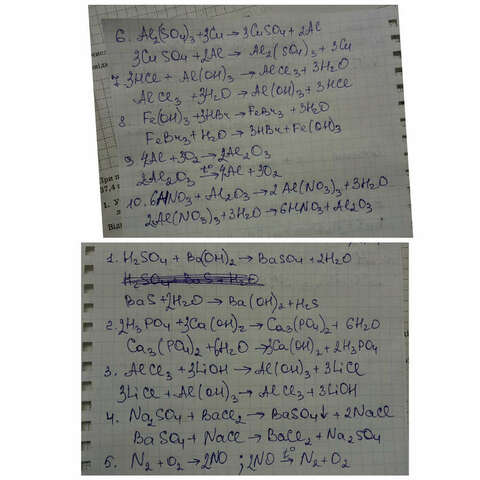 6. Al₂(SO₄)₃+3Cu → 3CuSO₄ + 2Al
3CuSO₄ + 2Al → Al₂(SO₄)₃ + 3Cu
7. 3HCl + Al(OH)₃ → AlCl₃ + 3H₂O
AlCl₃ + 3H₂O → Al(OH)₃ + 3HCl
8. Fe(OH)₃ + 3HBr → FeBr₃ + 3H₂O
FeBr₃ + H₂O → 3HBr + Fe(OH)₃
9. 4Al + 3O₂ → 2Al₂O₃
2Al₂O₃ t° → 4Al + 3O₂
10. 6HNO₃ + Al₂O₃ → 2Al(NO₃)₃ + 3H₂O
2Al(NO₃)₃ + 3H₂O → 6HNO₃ + Al₂O₃
При
37,4
1. У
Від
1. H₂SO₄ + Ba(OH)₂ → BaSO₄ + 2H₂O
H₂SO₄ + BaS + H₂O
BaS + 2H₂O → Ba(OH)₂ + H₂S
2. 2H₃PO₄ + 3Ca(OH)₂ → Ca₃(PO₄)₂ + 6H₂O
Ca₃(PO₄)₂ + 6H₂O → 3Ca(OH)₂ + 2H₃PO₄
3. AlCl₃ + 3LiOH → Al(OH)₃ + 3LiCl
3LiCl + Al(OH)₃ → AlCl₃ + 3LiOH
4. Na₂SO₄ + BaCl₂ → BaSO₄↓ + 2NaCl
BaSO₄ + NaCl → BaCl₂ + Na₂SO₄
5. N₂ + O₂ → 2NO ; 2NO t° → N₂ + O₂